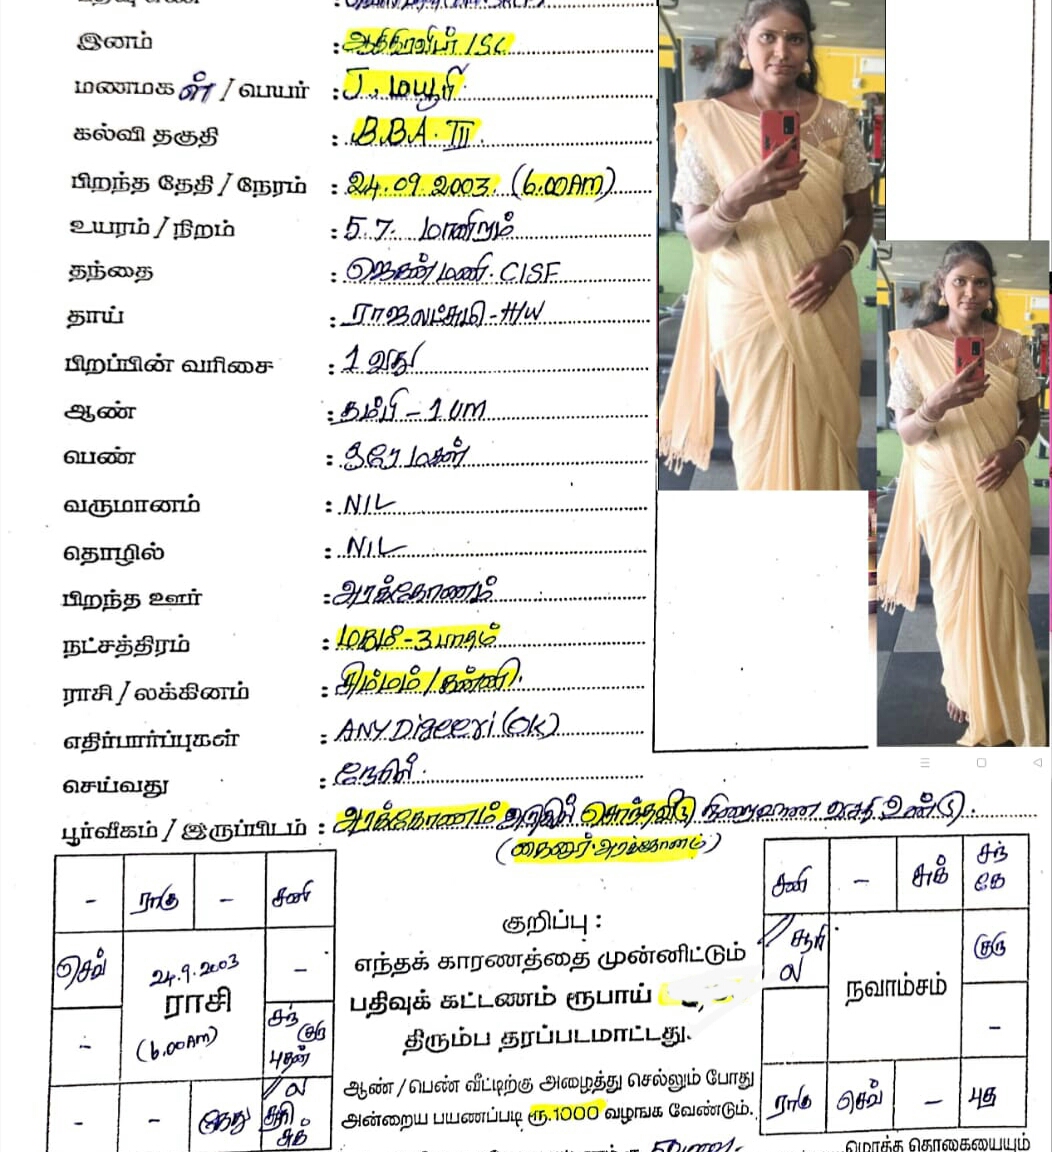 இனம் : ஆதிதிராவிடர் / SC
மணமகள் / பெயர் : J. மயூரி
கல்வி தகுதி : B.B.A. III
பிறந்த தேதி / நேரம் : 24.09.2003. (6.00AM)
உயரம் / நிறம் : 5.7. மாநிறம்
தந்தை : ஜெகன்மணி. CISF
தாய் : ராஜலட்சுமி - H/W
பிறப்பின் வரிசை : 1 வது
ஆண் : தம்பி - 1
பெண் : ஒரே மகள்
வருமானம் : NIL
தொழில் : NIL
பிறந்த ஊர் : அரக்கோணம்
நட்சத்திரம் : மகம் - 3 பாதம்
ராசி / லக்கினம் : சிம்மம் / கன்னி.
எதிர்பார்ப்புகள் : ANY Digeeri (OK)
செய்வது : நேரில்.
பூர்வீகம் / இருப்பிடம் : அரக்கோணம் அருகில் சொந்தவீடு நிறைவான வசதி உண்டு.
அரக்கோணம்)
- ராகு - சனி
செவ் -
24.9.2003
ராசி
(6.00AM)
- சந் குரு புதன்
- - கேது ல சூரி சுக்
குறிப்பு :
எந்தக் காரணத்தை முன்னிட்டும்
பதிவுக் கட்டணம் ரூபாய்
திரும்ப தரப்படமாட்டாது.
ஆண் / பெண் வீட்டிற்கு அழைத்து செல்லும் போது
அன்றைய பயணப்படி ரூ.1000 வழங்க வேண்டும்.
சனி - சுக் சந் கே
சூரி ல குரு
நவாம்சம்
-
ராகு செவ் - புத
தொகையையும்